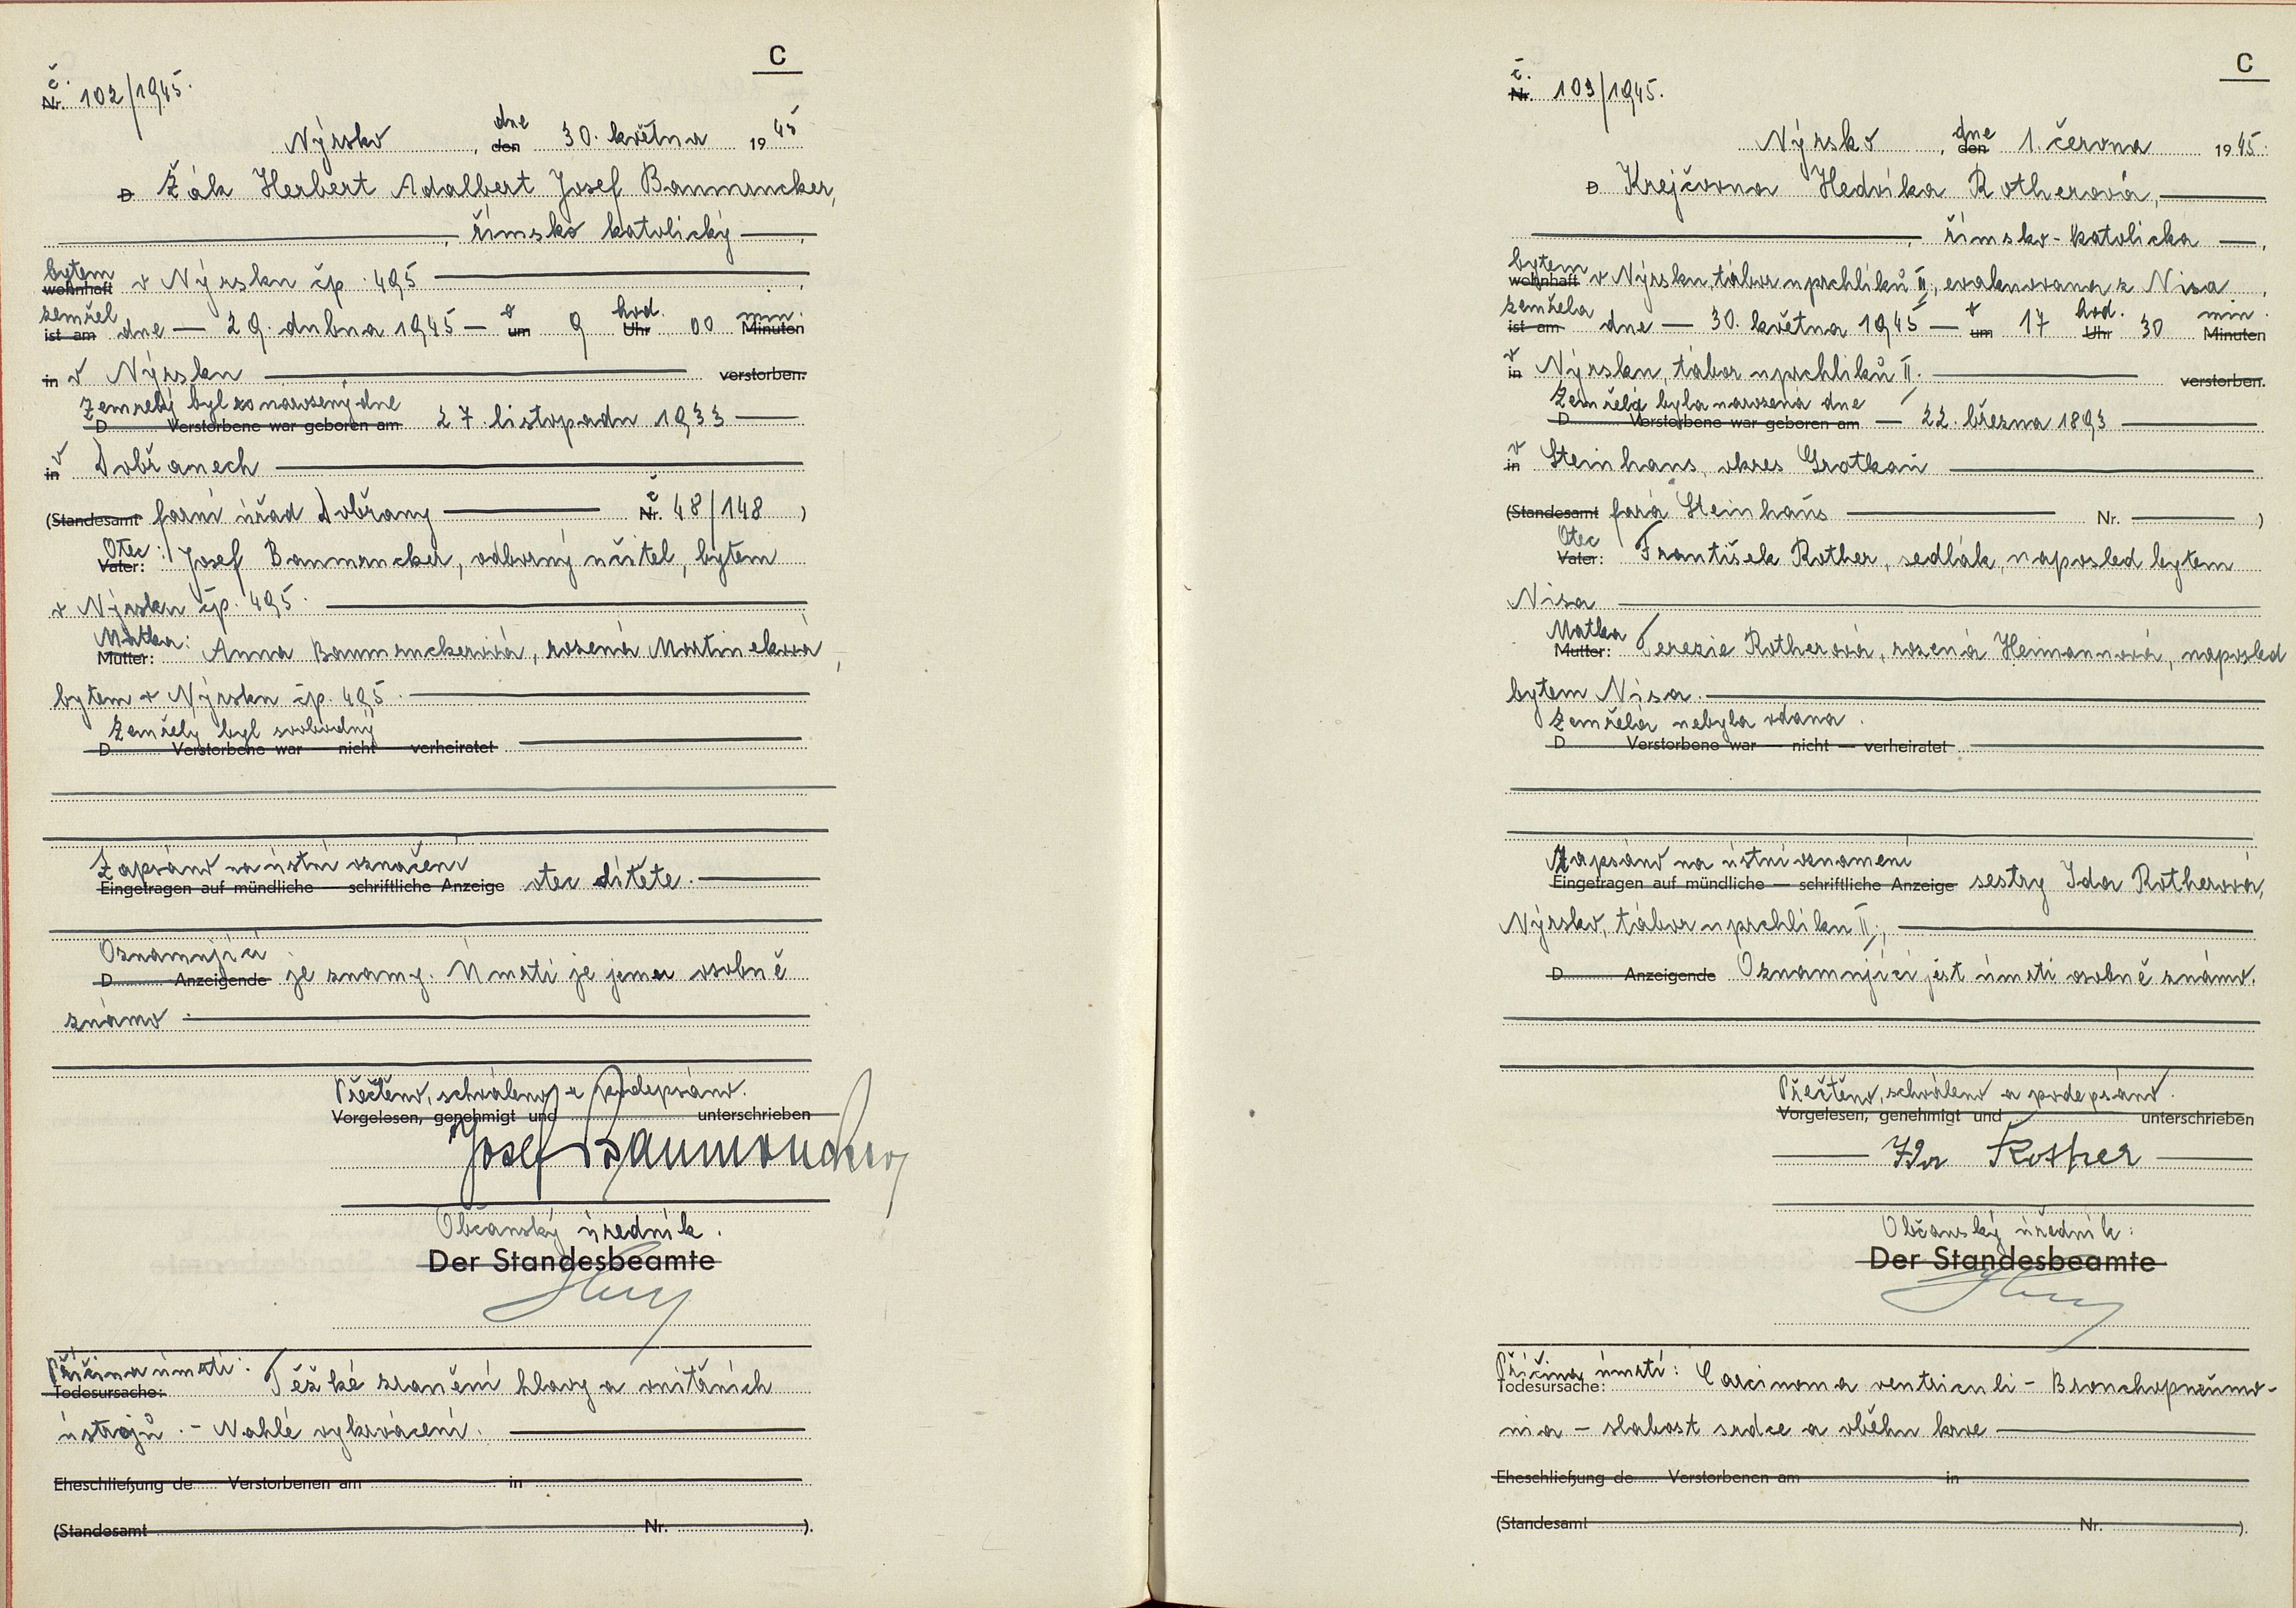 C
č.
Nr. 102/1945.
Nýrsko, dne den 30. května 1945
D Žák Herbert Adalbert Josef Baumrucker,
, římsko katolický,
bytem
wohnhaft v Nýrsku čp. 495
zemřel v hod. min.
ist am dne — 29. dubna 1945 — um 9 Uhr 00 Minuten
in v Nýrsku verstorben.
Zemřelý byl narozený dne
D Verstorbene war geboren am 27. listopadu 1933
v
in Dobřanech
(Standesamt farní úřad Dobřany č Nr. 48/148 )
Otec:
Vater: Josef Baumrucker, odborný učitel, bytem
v Nýrsku čp. 495.
Matka:
Mutter: Anna Baumruckerová, rozená Martineková,
bytem v Nýrsku čp. 495.
Zemřelý byl svobodný
D Verstorbene war — nicht — verheiratet
Zapsáno na ústní označení
Eingetragen auf mündliche — schriftliche Anzeige otec dítěte.
Oznamující
D Anzeigende je znamy. Úmrtí je jemu osobně
známo.
Přečteno, schváleno a podepsáno.
Vorgelesen, genehmigt und unterschrieben
Josef Baumrucker
Občanský úředník.
Der Standesbeamte
Příčina úmrtí:
Todesursache: Těžké zranění hlavy a vnitřních
ústrojů. - Nahlé vykrvácení.
Eheschließung de Verstorbenen am in
(Standesamt Nr. ).
C
č.
Nr. 103/1945.
Nýrsko, dne den 1. června 1945.
D Krejčovna Hedvika Rotherová,
, římsko-katolická —,
bytem
wohnhaft v Nýrsku, tábor uprchlíků II., evakuovana z Nisa,
zemřela v hod. min.
ist am dne — 30. května 1945 — um 17 Uhr 30 Minuten
v
in Nýrsku, tábor uprchlíků II. verstorben.
Zemřelá byla narozená dne
D Verstorbene war geboren am — 22. března 1893
v
in Steinhaus, okres Grotkau
(Standesamt fara Steinhaus Nr. )
Otec
Vater: František Rother, sedlák, naposled bytem
Nisa
Matka
Mutter: Terezie Rotherová, rozená Heimannová, naposled
bytem Nisa.
Zemřelá nebyla vdana.
D Verstorbene war — nicht — verheiratet
Zapsáno na ústní oznamení
Eingetragen auf mündliche — schriftliche Anzeige sestry Ida Rotherová,
Nýrsko, tábor uprchlíku II.,
D Anzeigende Oznamující jest úmrti osobně známo.
Přečteno, schváleno a podepsáno.
Vorgelesen, genehmigt und unterschrieben
Ida Rother
Občanský úředník:
Der Standesbeamte
Příčina úmrtí:
Todesursache: Carcinoma ventriculi - Bronchopneumo-
nia - slabost srdce a oběhu krve
Eheschließung de Verstorbenen am in
(Standesamt Nr. ).